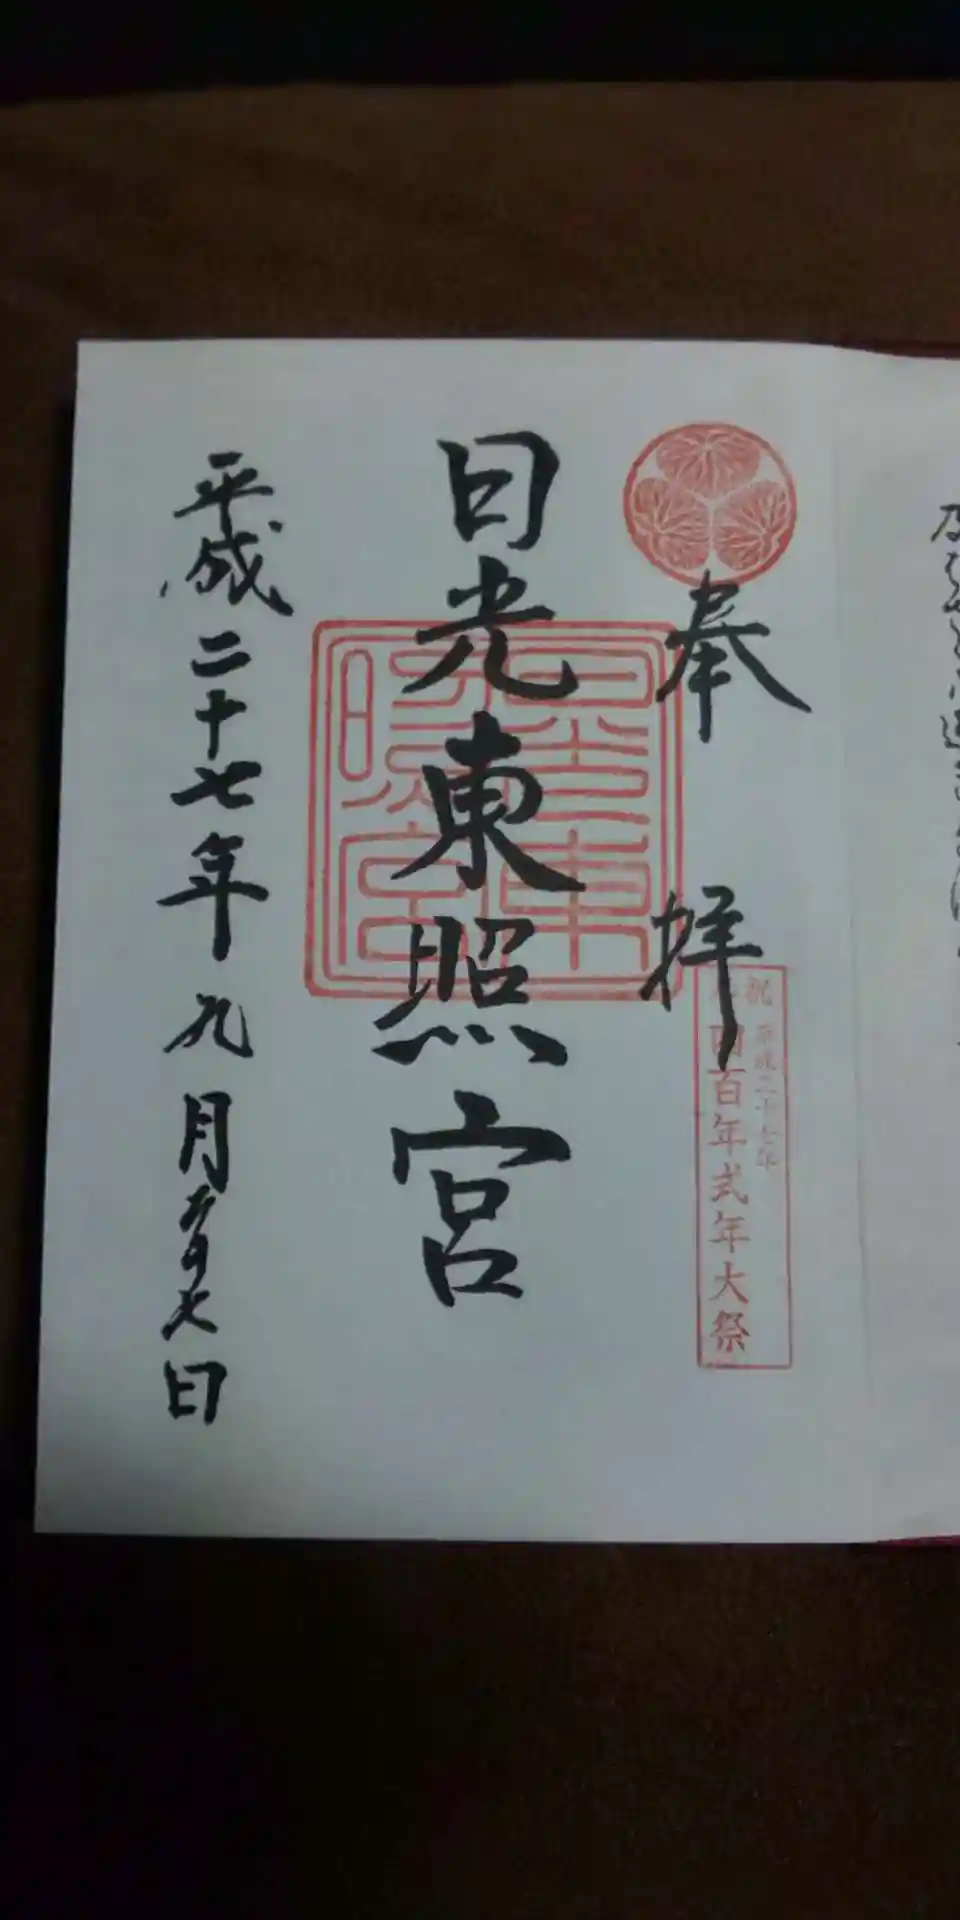 奉拝
祝 平成二十七年
四百年式年大祭
日光東照宮
日光東照宮
平成二十七年九月二十七日